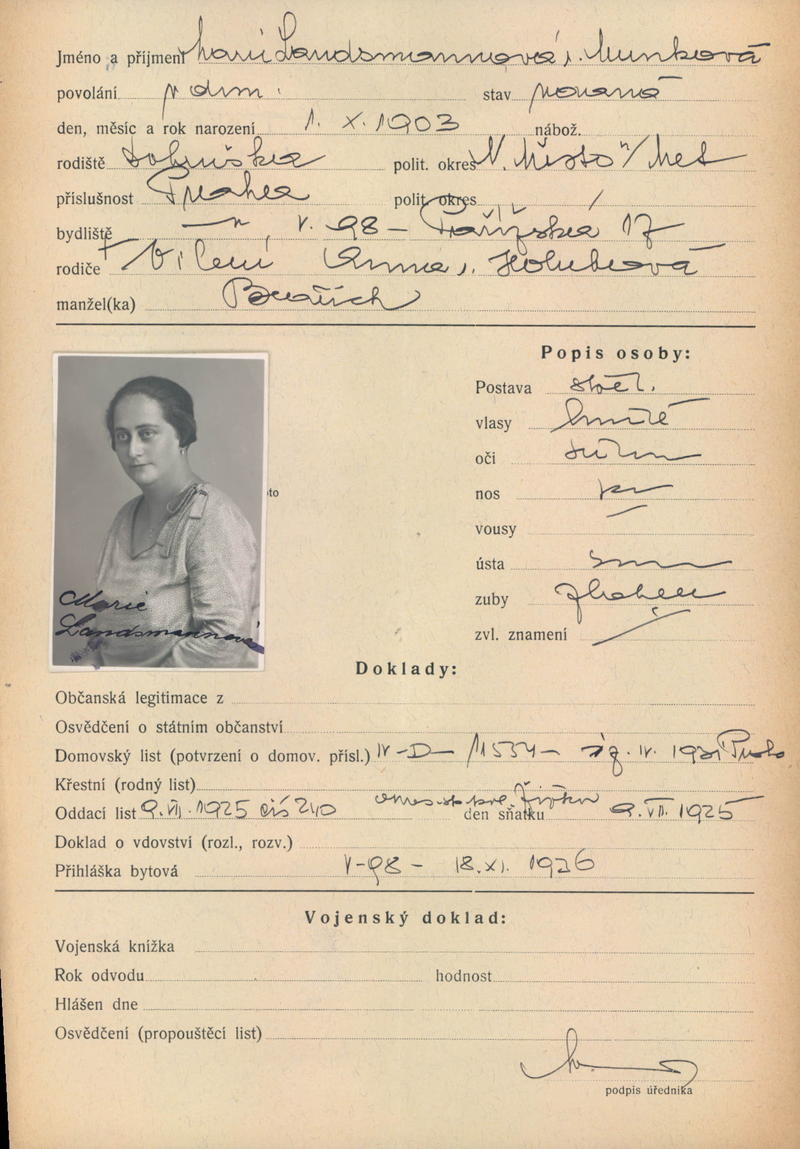 Jméno a příjmení Marie Landsmannová r. Munková
povolání v dom. stav provdaná
den, měsíc a rok narození 1. X. 1903 nábož.
rodiště Dobruška polit. okres N. Město n/Met
příslušnost Praha polit. okres /
bydliště — " — , V. 98 — Pařížska 17
rodiče + Vilém Anna r. Holubová
manžel(ka) Bedřich
Popis osoby:
Postava střed.
vlasy hnědé
oči
nos
to
vousy —
ústa
zuby
zvl. znamení /
Marie
Landsmannová
Doklady:
Občanská legitimace z
Osvědčení o státním občanství
Domovský list (potvrzení o domov. přísl.) IV-D-/1554- IV. 193
Křestní (rodný list)
Oddací list 9. VII. 1925 čís 240 den sňatku 9. VII. 1925
Doklad o vdovství (rozl., rozv.)
Přihláška bytová V-98 - 18. XI. 1926
Vojenský doklad:
Vojenská knížka
Rok odvodu hodnost
Hlášen dne
Osvědčení (propouštěcí list)
podpis úředníka